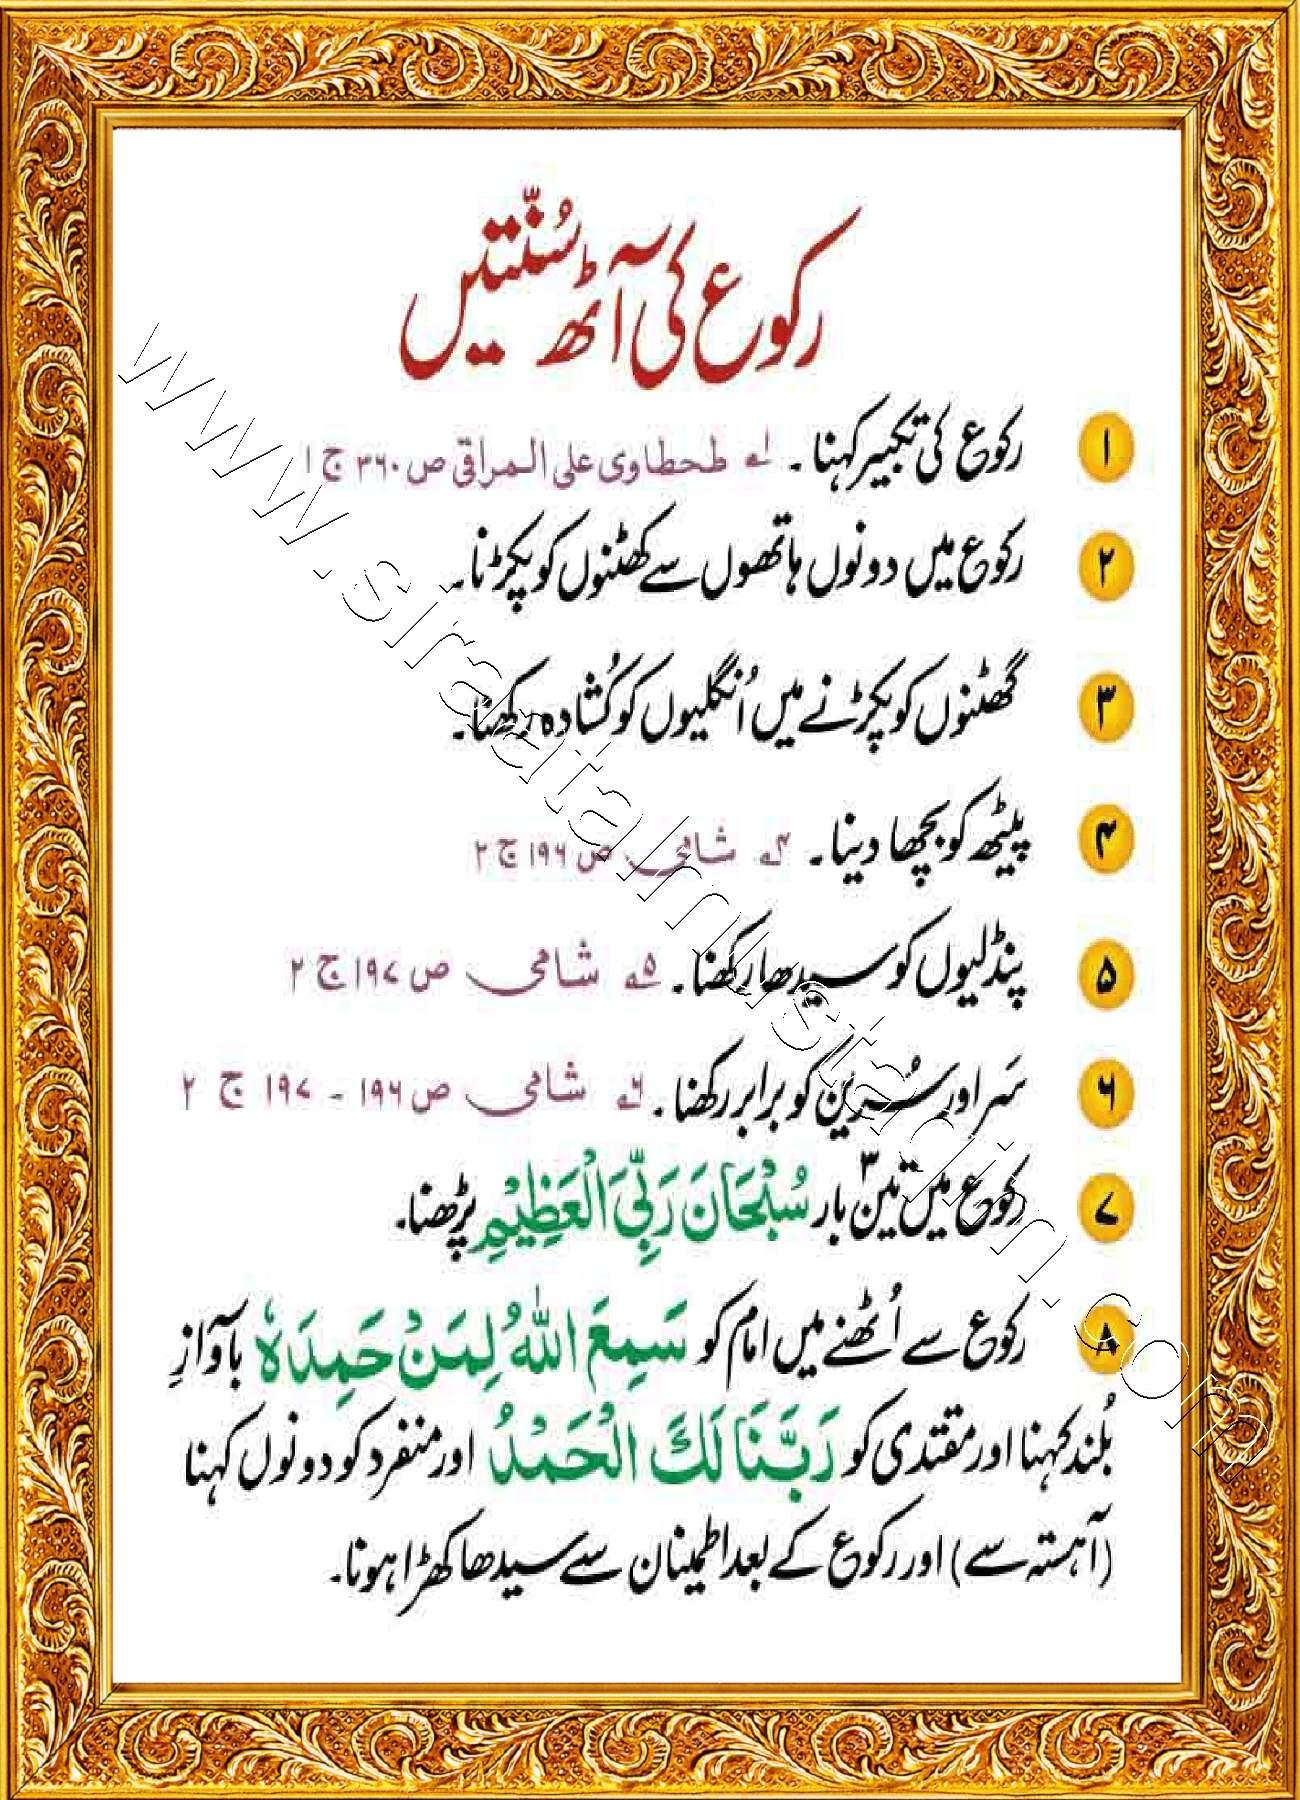 رکوع کی آٹھ سُنّتیں
۱ رکوع کی تکبیر کہنا۔ ۱ے طحطاوی علی المراقی ص ۳۶۰ ج ۱
۲ رکوع میں دونوں ہاتھوں سے گھٹنوں کو پکڑنا۔
۳ گھٹنوں کو پکڑنے میں اُنگلیوں کو کُشادہ رکھنا۔
۴ پیٹھ کو بچھا دینا۔ ۴ے شامی ص ۱۹۶ ج ۲
۵ پنڈلیوں کو سیدھا رکھنا۔ ۵ے شامی ص ۱۹۷ ج ۲
۶ سَر اور سُرین کو برابر رکھنا۔ ۶ے شامی ص ۱۹۶ - ۱۹۷ ج ۲
۷ رکوع میں تین۳ بار سُبْحَانَ رَبِّیَ الْعَظِیْمِ پڑھنا۔
۸ رکوع سے اُٹھنے میں امام کو سَمِعَ اللّٰہُ لِمَنْ حَمِدَہٗ باآوازِ
بُلند کہنا اور مقتدی کو رَبَّنَا لَکَ الْحَمْدُ اور منفرد کو دونوں کہنا
(آہستہ سے) اور رکوع کے بعد اطمینان سے سیدھا کھڑا ہونا۔
www.siraatalmustaqim.com